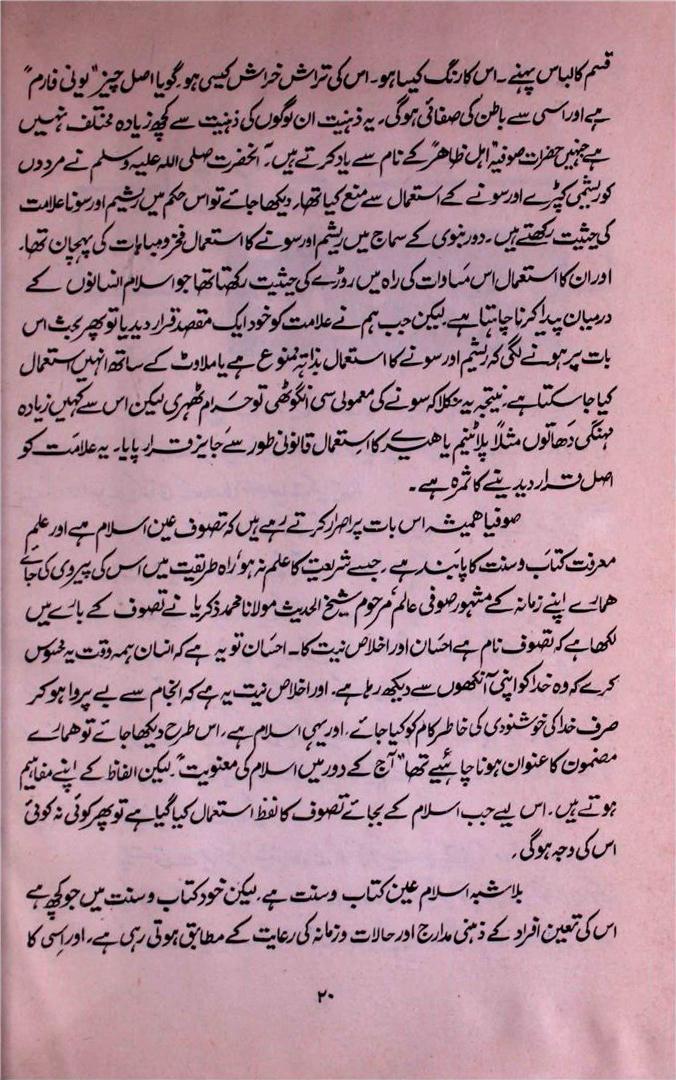 قسم کا لباس پہنے۔ اس کا رنگ کیسا ہو۔ اس کی تراش خراش کیسی ہو۔ گویا اصل چیز "یونی فارم"
ہے اور اسی سے باطن کی صفائی ہوگی۔ یہ ذہنیت ان لوگوں کی ذہنیت سے کچھ زیادہ مختلف نہیں
ہے جنہیں حضرات صوفیہ "اہل ظاہر" کے نام سے یاد کرتے ہیں۔ آنحضرت صلی اللہ علیہ وسلم نے مردوں
کو ریشمی کپڑے اور سونے کے استعمال سے منع کیا تھا۔ دیکھا جائے تو اس حکم میں ریشیم اور سونا علامت
کی حیثیت رکھتے ہیں۔ دور نبوی کے سماج میں ریشم اور سونے کا استعمال فخر و مباہات کی پہچان تھا۔
اور ان کا استعمال اس مساوات کی راہ میں روڑے کی حیثیت رکھتا تھا جو اسلام انسانوں کے
درمیان پیدا کرنا چاہتا ہے۔ لیکن جب ہم نے علامت کو خود ایک مقصد قرار دیدیا تو پھر بحث اس
بات پر ہونے لگی کہ ریشیم اور سونے کا استعمال بذاتہٖ ممنوع ہے یا ملاوٹ کے ساتھ انہیں استعمال
کیا جا سکتا ہے۔ نتیجہ یہ نکلا کہ سونے کی معمولی سی انگوٹھی تو حرام ٹھہری لیکن اس سے کہیں زیادہ
مہنگی دھاتوں مثلاً پلاٹینم یا ہیرے کا استعمال قانونی طور سے جایز قرار پایا۔ یہ علامت کو
اصل قرار دیدینے کا ثمرہ ہے۔
صوفیا ہمیشہ اس بات پر اصرار کرتے رہے ہیں کہ تصوف عین اسلام ہے اور علم
معرفت کتاب و سنت کا پابند ہے۔ جسے شریعت کا علم نہ ہو، راہ طریقیت میں اس کی پیروی کی جائے
ہمارے اپنے زمانہ کے مشہور صوفی عالم، مرحوم شیخ الحدیث مولانا محمد ذکریا نے تصوف کے بارے میں
لکھا ہے کہ تصوف نام ہے احسان اور اخلاص نیت کا۔ احسان تو یہ ہے کہ انسان ہمہ وقت یہ محسوس
کرے کہ وہ خدا کو اپنی آنکھوں سے دیکھ رہا ہے۔ اور اخلاص نیت یہ ہے کہ انجام سے بے پروا ہو کر
صرف خدا کی خوشنودی کی خاطر کام کو کیا جائے۔ اور یہی اسلام ہے۔ اس طرح دیکھا جائے تو ہمارے
مضمون کا عنوان ہونا چاہئیے تھا "آج کے دور میں اسلام کی معنویت"۔ لیکن الفاظ کے اپنے مفاہیم
ہوتے ہیں۔ اس لیے جب اسلام کے بجائے تصوف کا لفظ استعمال کیا گیا ہے تو پھر کوئی نہ کوئی
اس کی وجہ ہوگی۔
بلاشبہ اسلام عین کتاب و سنت ہے۔ لیکن خود کتاب و سنت میں جو کچھ ہے
اس کی تعین افراد کے ذہنی مدارج اور حالات و زمانہ کی رعایت کے مطابق ہوتی رہی ہے، اور اسی کا
۲۰